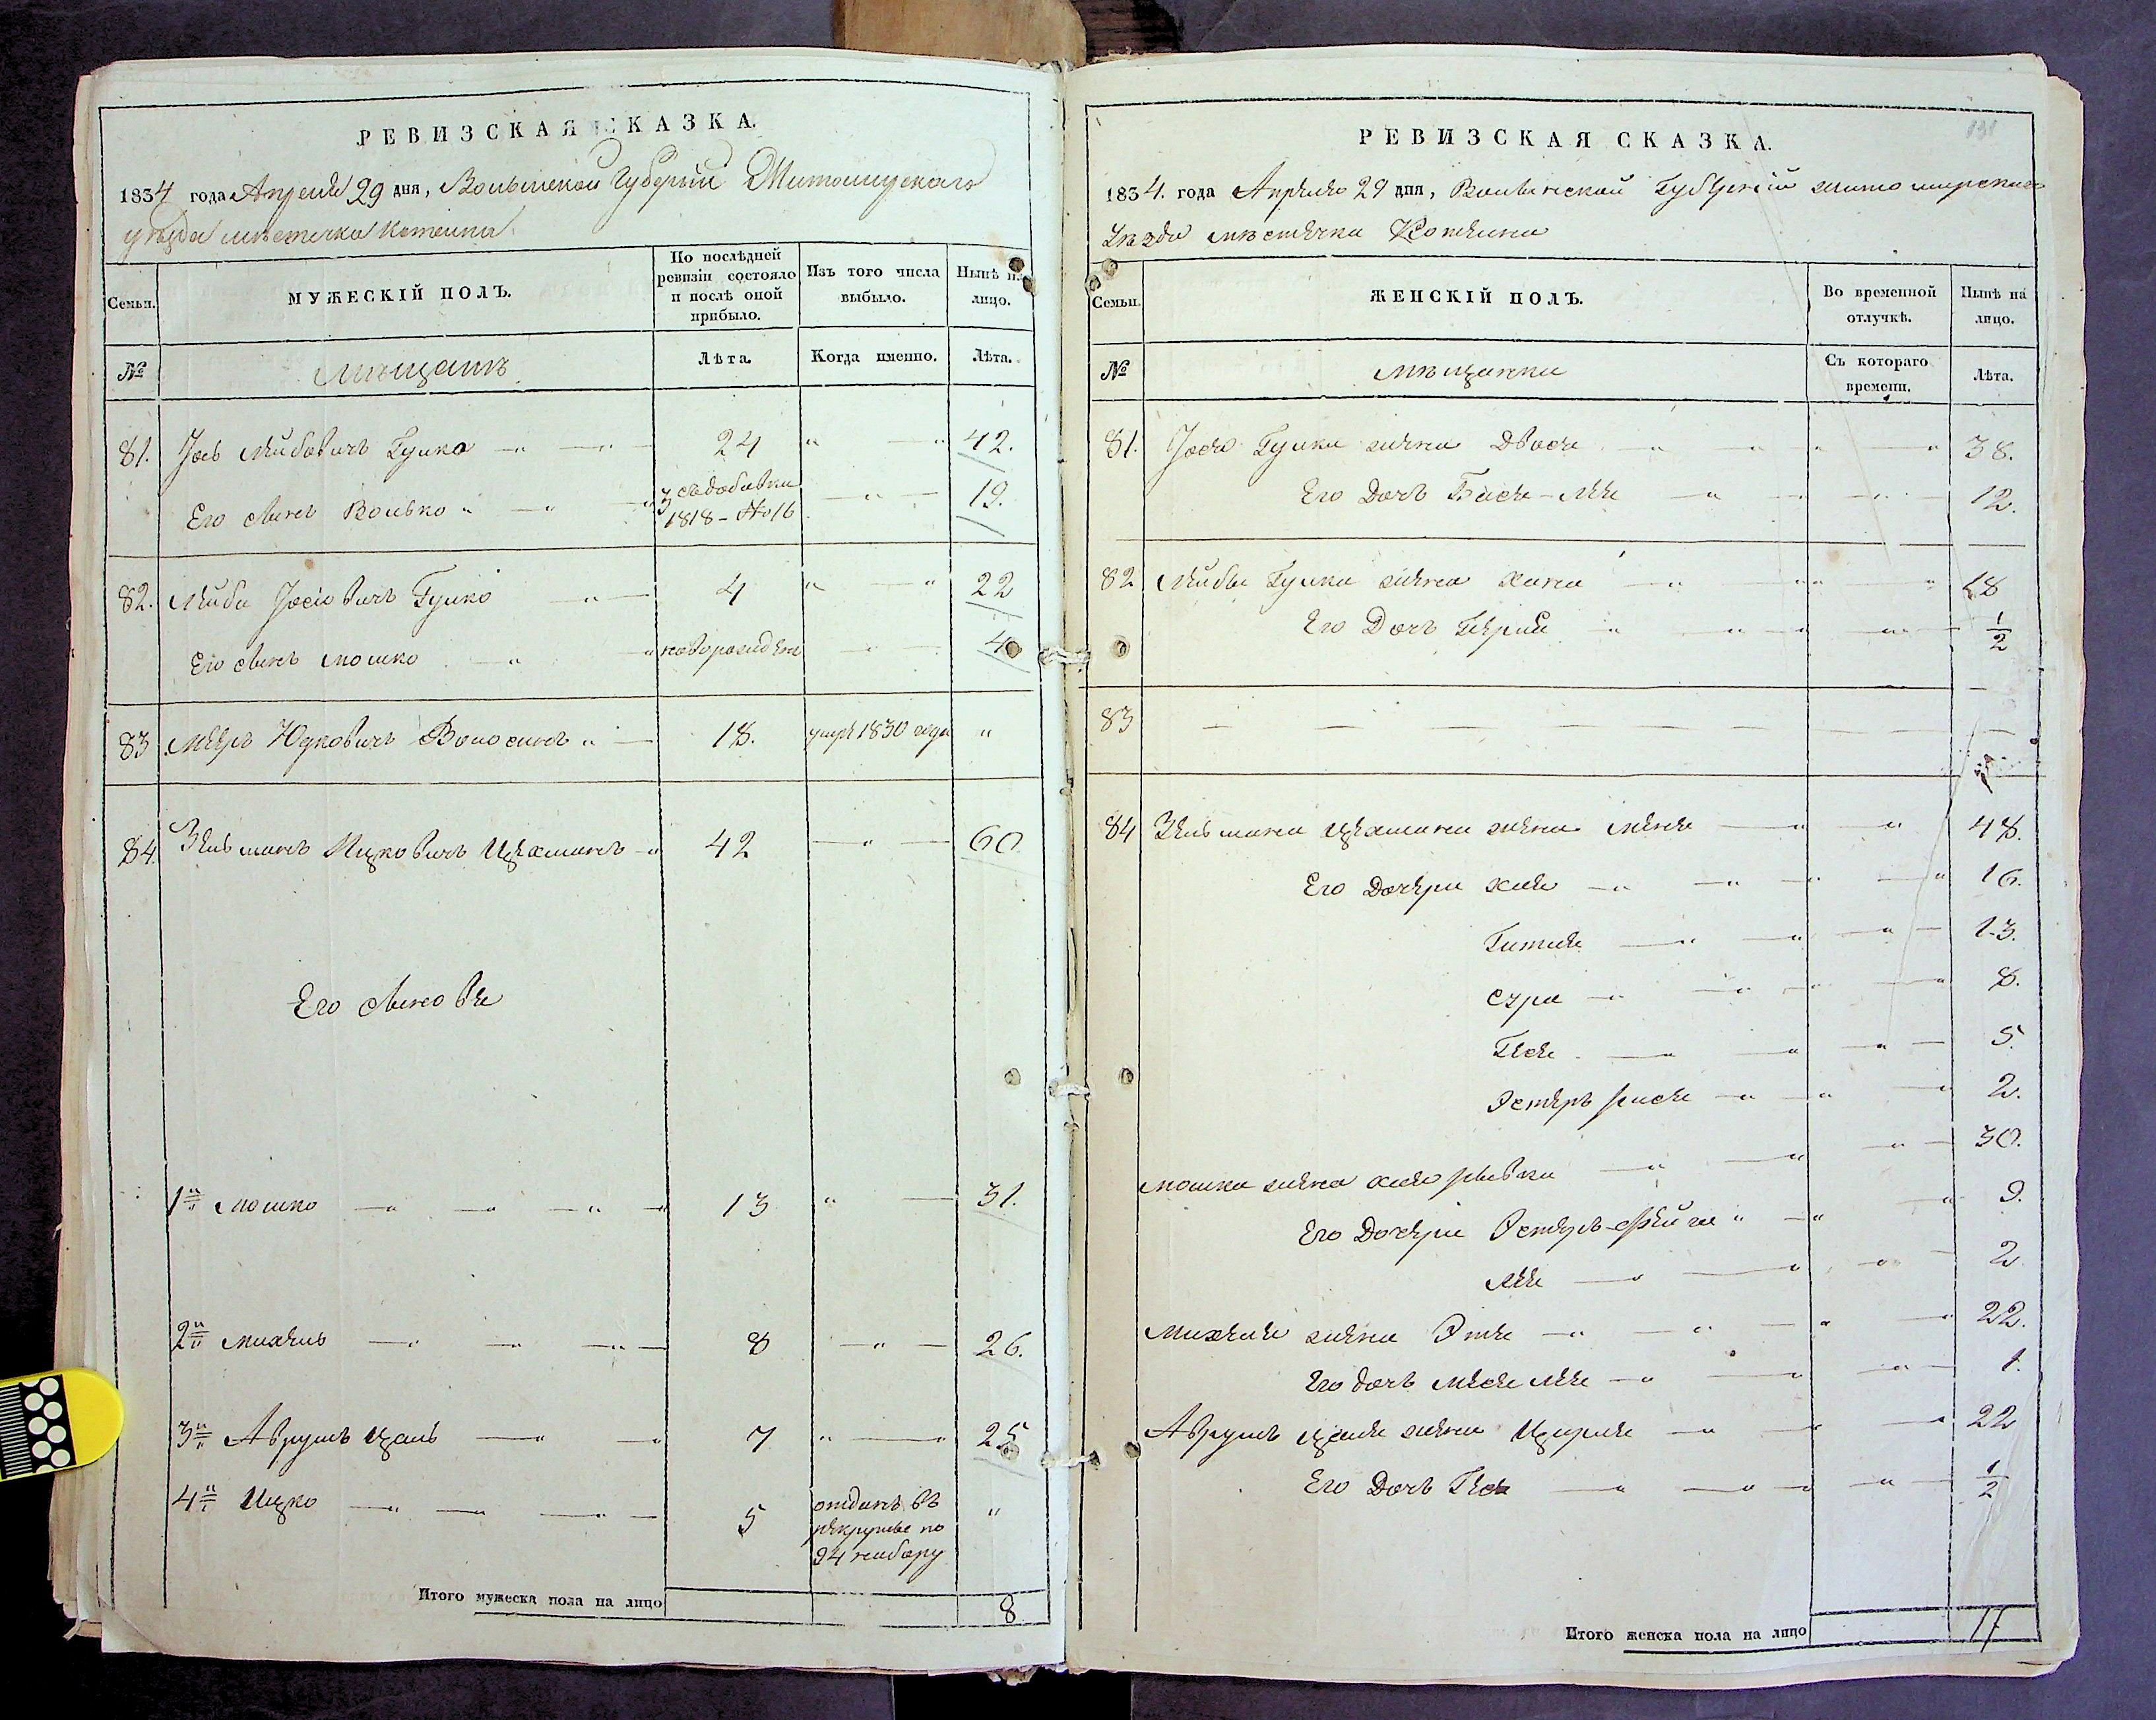 РЕВИЗСКАЯ СКАЗКА.
1834 года Апреля 29 дня, Волынской Губернии Житомирского
уѣзда мѣстечка Котелни
Семьи.
МУЖЕСКІЙ ПОЛЪ.
По послѣдней ревизіи состояло и послѣ оной прибыло.
Изъ того числа выбыло.
Нынѣ на лицо.
№
Мѣщанъ
Лѣта.
Когда именно.
Лѣта.
81. Іось Лейбовичъ Гулко 24 42.
Его сынъ Волько 3 съ добавки 1818 - №16 19.
82. Лейба Іосіовичъ Гулко 4 22
Его сынъ Мошко новорожденъ 4
83 Мееръ Юдковичъ Волосинъ 18. умре 1830 года "
84. Зельманъ Ицковичъ Цехманъ 42 60
Его сыновье
1й Мошко 13 31.
2й Михель 8 26.
3й Аврумъ Цаль 7 25
4й Ицко 5 отданъ въ рекруты по 94 набору "
Итого мужеска пола на лицо 8
191
РЕВИЗСКАЯ СКАЗКА.
1834. года Апреля 29 дня, Волынской Губерніи Житомирского
уѣзда мѣстечка Котелни
Семьи.
ЖЕНСКІЙ ПОЛЪ.
Во временной отлучкѣ.
Нынѣ на лицо.
№
Мѣщанки
Съ котораго времени.
Лѣта.
81. Іося Гулки жена Двося 38.
Его Дочь Бася-Лея 12.
82 Лейбы Гулки жена Хана 18
Его Дочь 1/2
83
84 Зельмана Цехмана жена 48.
Его Дочери Хая 16.
Гитля 13.
Сура 8.
Геся 5.
Эстеръ Рися 2.
Мошки жена Хая Рывка 30.
Его Дочери Эстеръ-Фейга 9.
Лея 2
Михеля жена Этя 22.
Его дочь Лея 1.
Аврумъ Цаля жена Цирля 22
Его Дочь 1/2
Итого женска пола на лицо 17